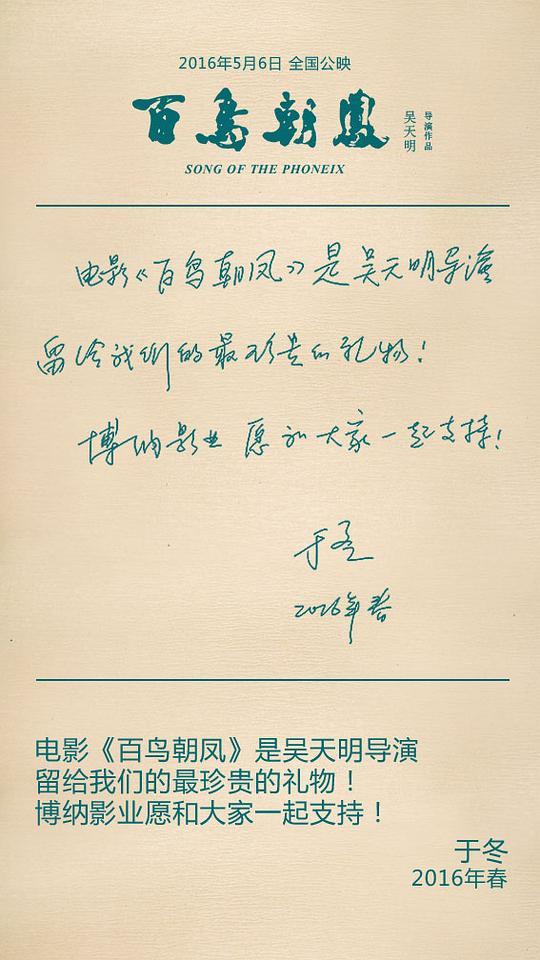 2016年5月6日 全国公映
百鳥朝鳳
吴天明
导演作品
SONG OF THE PHONEIX
电影《百鸟朝凤》是吴天明导演
留给我们的最珍贵的礼物！
博纳影业愿和大家一起支持！
于冬
2016年春
电影《百鸟朝凤》是吴天明导演
留给我们的最珍贵的礼物！
博纳影业愿和大家一起支持！
于冬
2016年春